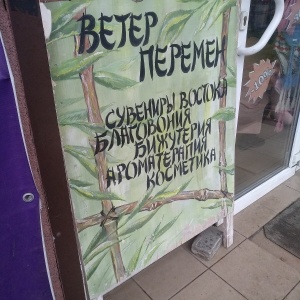 ВЕТЕР
ПЕРЕМЕН
СУВЕНИРЫ ВОСТОКА
БЛАГОВОНИЯ
БИЖУТЕРИЯ
АРОМАТЕРАПИЯ
КОСМЕТИКА